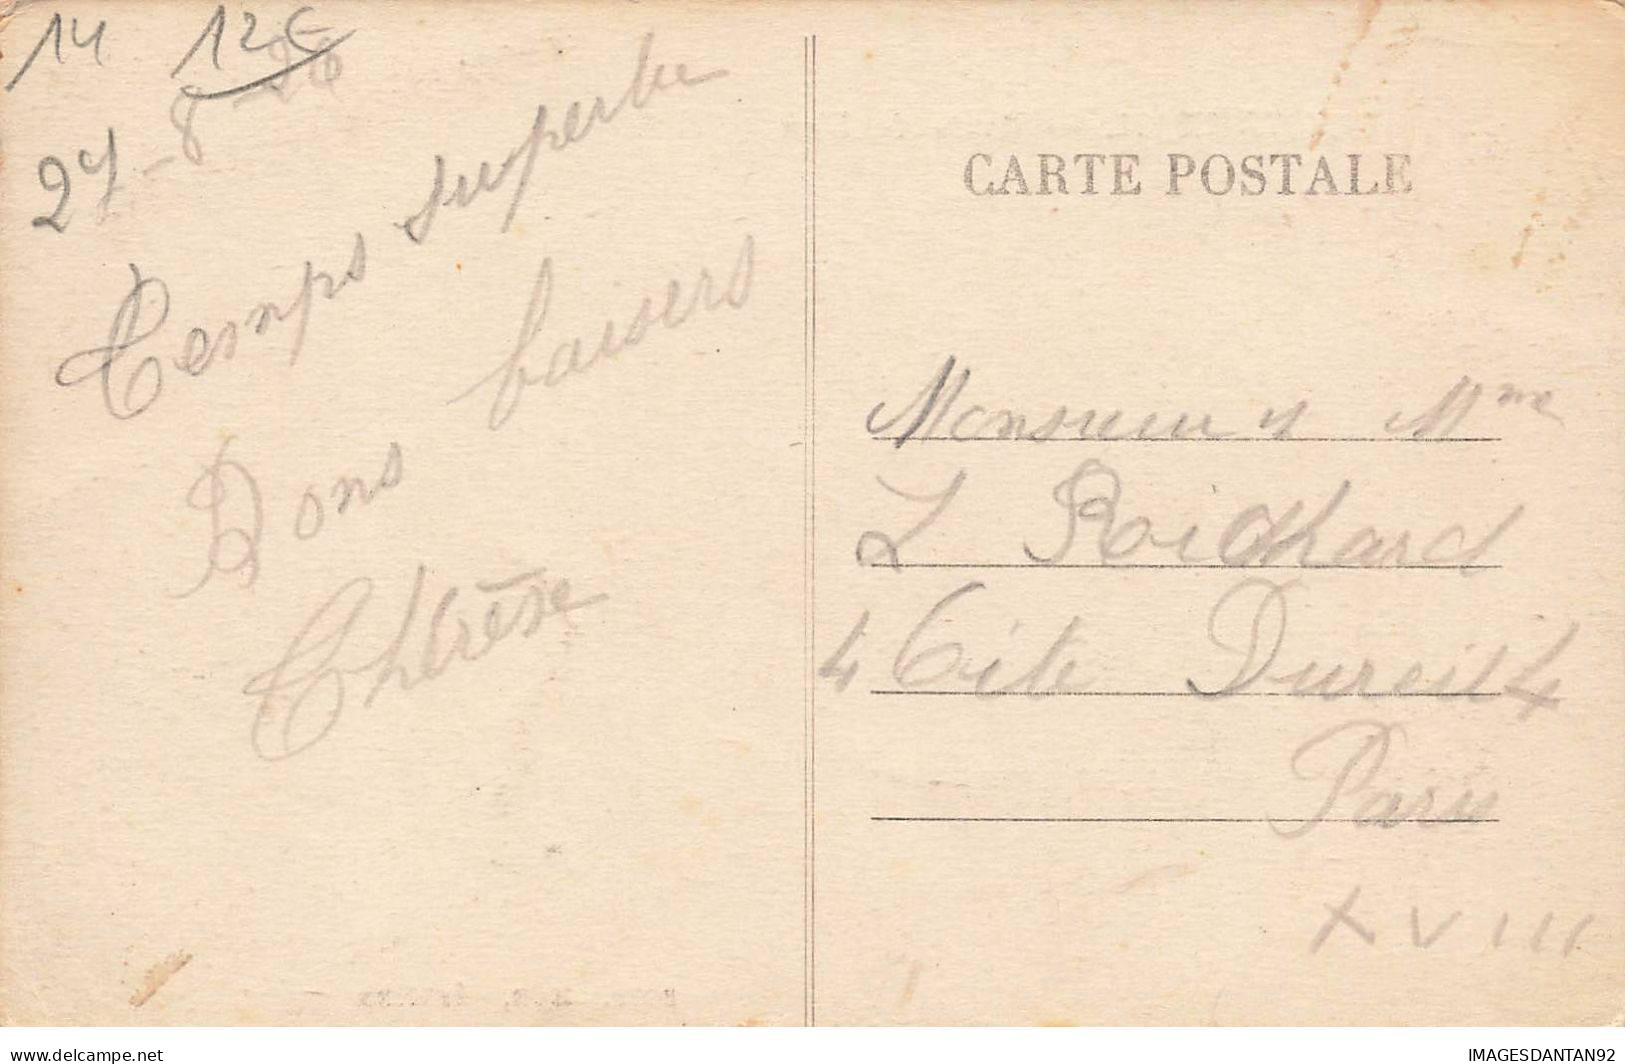 14 12€
27-8-26
Temps superbe
Bons baisers
Thérèse
CARTE POSTALE
Monsieur & Mme
L Roichard
4 Cité Dureil 4
Paris
XVIII
www.delcampe.net
IMAGESDANTAN92